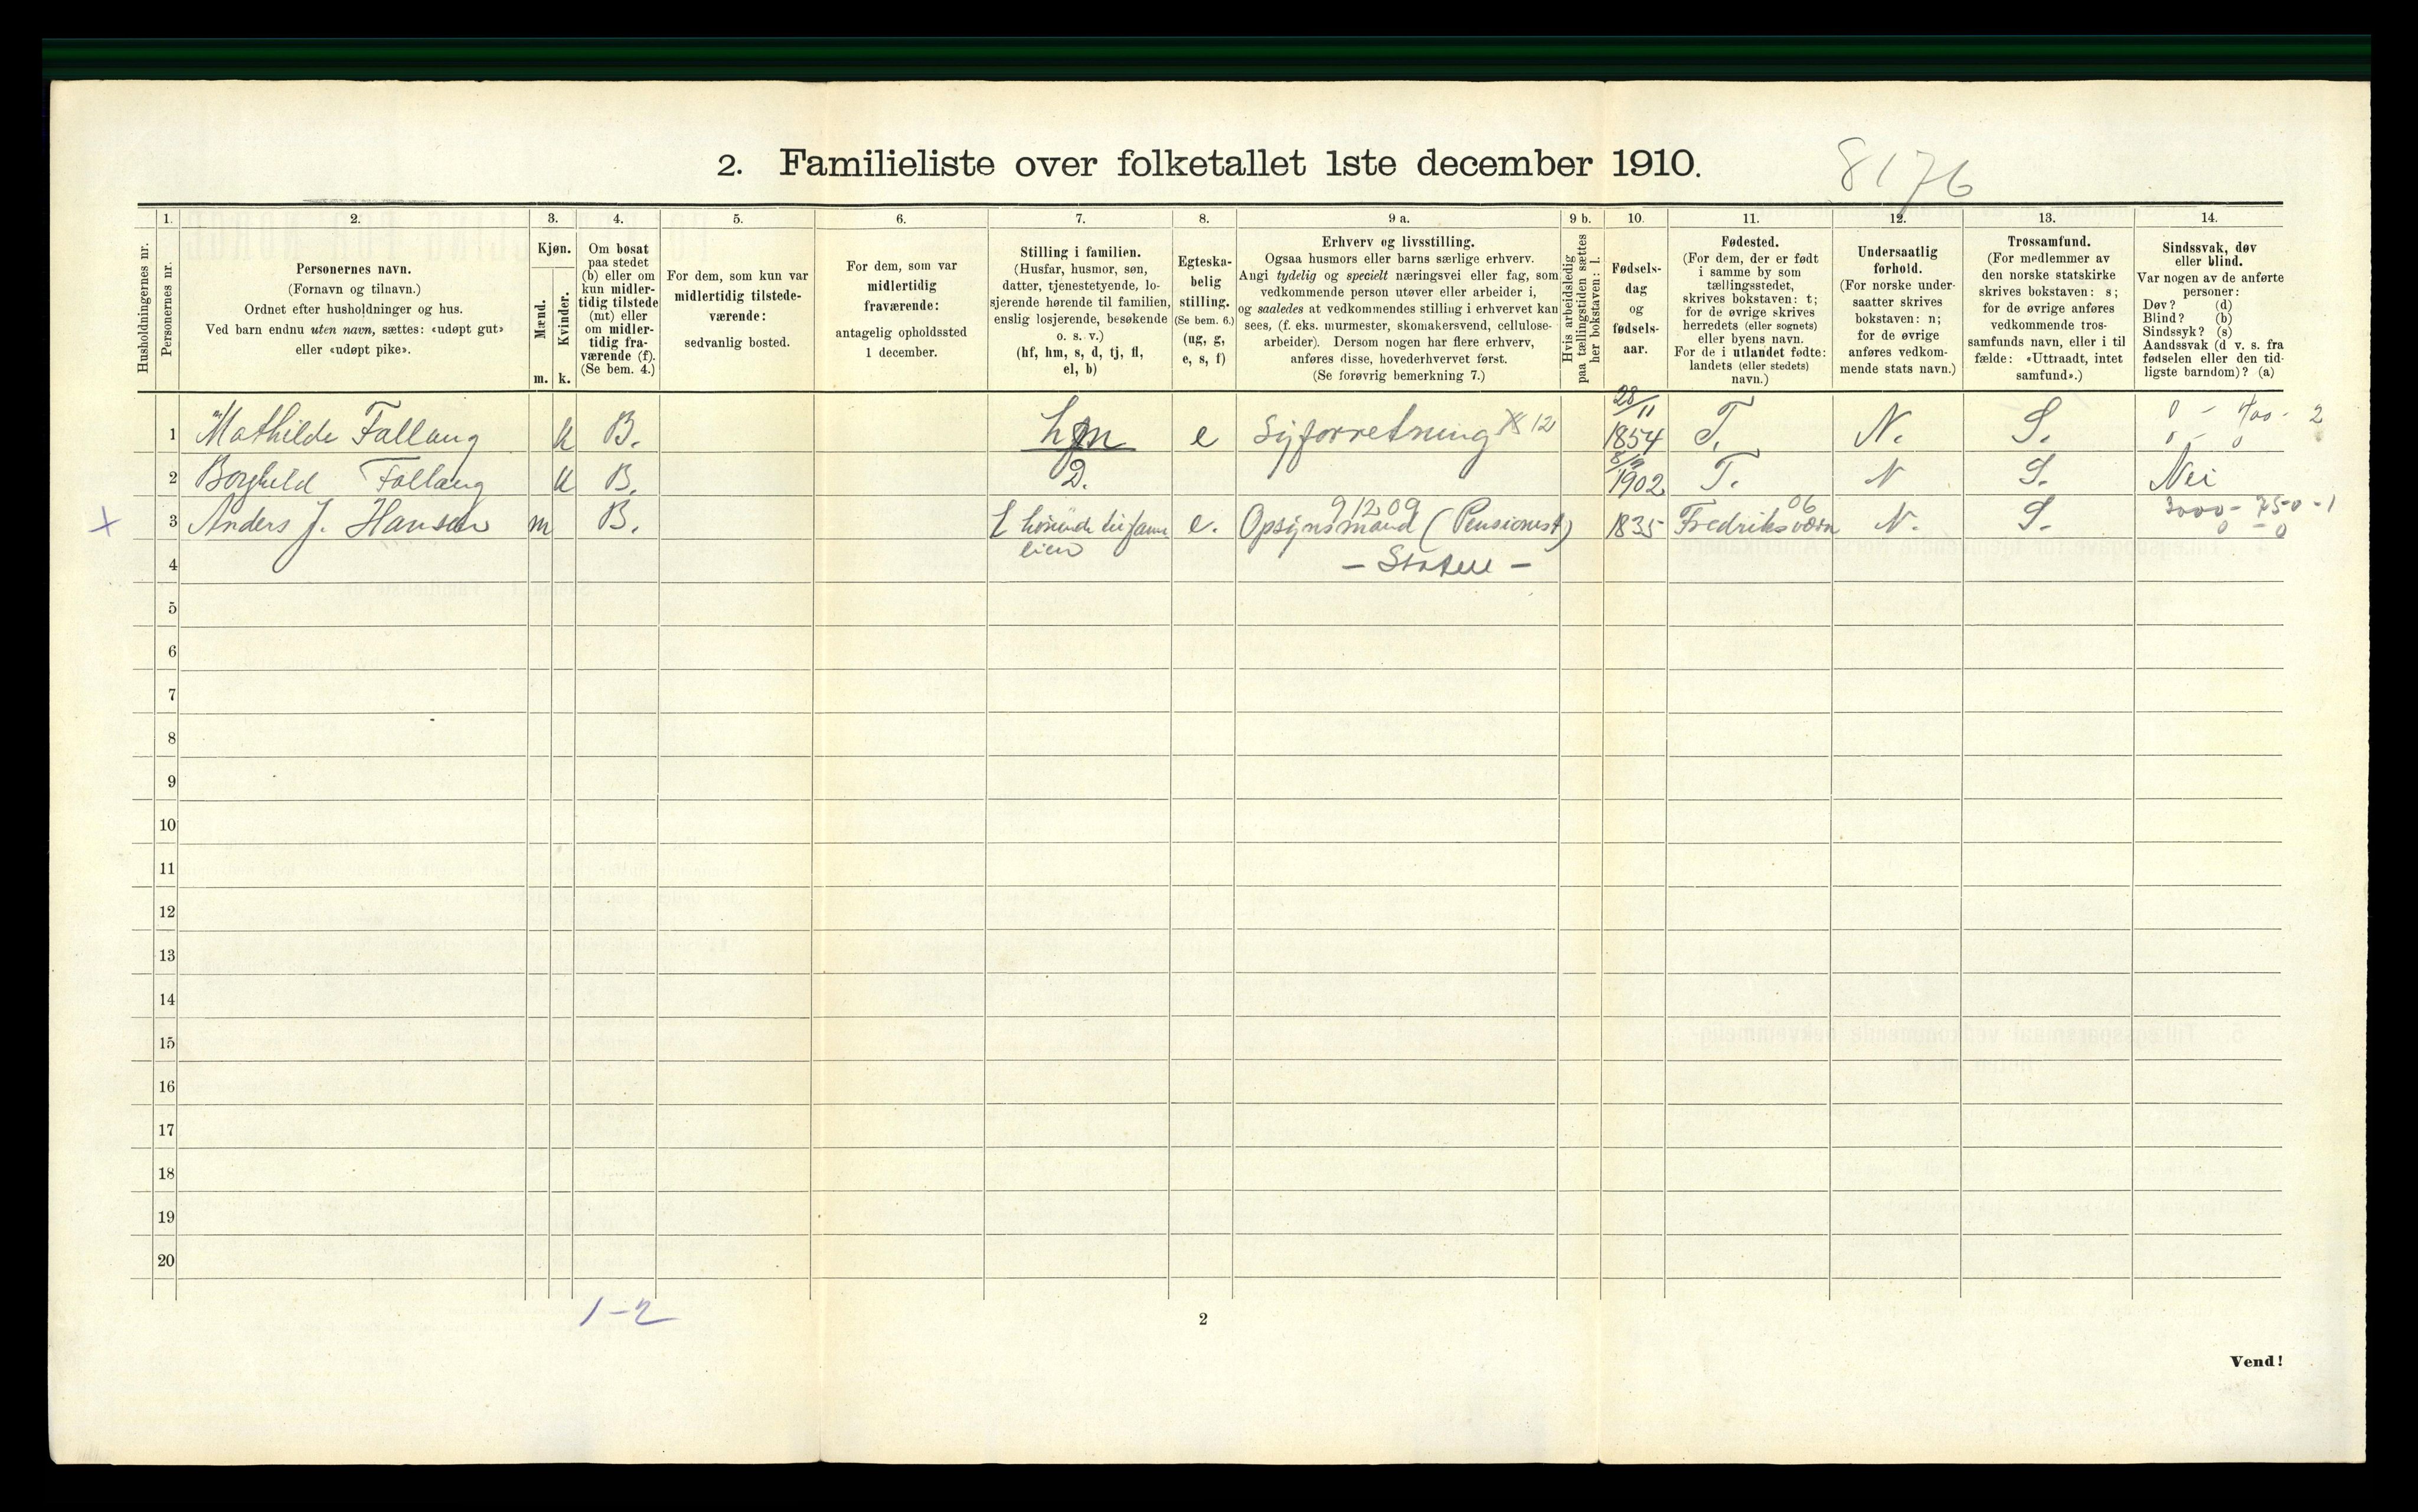 2. Familieliste over folketallet 1ste december 1910.
8176
1. 2. 3. 4. 5. 6. 7. 8. 9 a. 9 b. 10. 11. 12. 13. 14.
Husholdningernes nr.
Personernes nr.
Personernes navn.
(Fornavn og tilnavn.)
Ordnet efter husholdninger og hus.
Ved barn endnu uten navn, sættes: «udøpt gut»
eller «udøpt pike».
Kjøn.
Mænd.
Kvinder.
m. k.
Om bosat
paa stedet
(b) eller om
kun midler-
tidig tilstede
(mt) eller
om midler-
tidig fra-
værende (f).
(Se bem. 4.)
For dem, som kun var
midlertidig tilstede-
værende:
sedvanlig bosted.
For dem, som var
midlertidig
fraværende:
antagelig opholdssted
1 december.
Stilling i familien.
(Husfar, husmor, søn,
datter, tjenestetyende, lo-
sjerende hørende til familien,
enslig losjerende, besøkende
o. s. v.)
(hf, hm, s, d, tj, fl,
el, b)
Egteska-
belig
stilling.
(Se bem. 6.)
(ug, g,
e, s, f)
Erhverv og livsstilling.
Ogsaa husmors eller barns særlige erhverv.
Angi tydelig og specielt næringsvei eller fag, som
vedkommende person utøver eller arbeider i,
og saaledes at vedkommendes stilling i erhvervet kan
sees, (f. eks. murmester, skomakersvend, cellulose-
arbeider). Dersom nogen har flere erhverv,
anføres disse, hovederhvervet først.
(Se forøvrig bemerkning 7.)
Hvis arbeidsledig
paa tællingstiden sættes
her bokstaven: l.
Fødsels-
dag
og
fødsels-
aar.
Fødested.
(For dem, der er født
i samme by som
tællingsstedet,
skrives bokstaven: t;
for de øvrige skrives
herredets (eller sognets)
eller byens navn.
For de i utlandet fødte:
landets (eller stedets)
navn.)
Undersaatlig
forhold.
(For norske under-
saatter skrives
bokstaven: n;
for de øvrige
anføres vedkom-
mende stats navn.)
Trossamfund.
(For medlemmer av
den norske statskirke
skrives bokstaven: s;
for de øvrige anføres
vedkommende tros-
samfunds navn, eller i til
fælde: «Uttraadt, intet
samfund».)
Sindssvak, døv
eller blind.
Var nogen av de anførte
personer:
Døv? (d)
Blind? (b)
Sindssyk? (s)
Aandssvak (d v. s. fra
fødselen eller den tid-
ligste barndom)? (a)
28/11 0 - 400 - 2
1 Mathilde Fallang k B. hm e Syforretning X 12 1854 T. N. S. 0 - 0
2 Borghild Fallang k B. D. 8/10 1902 T. N S. Nei
91209 06 3000 - 750 - 1
X 3 Anders J. Hansen m B. l hørende til fami e. Opsynsmand (Pensionist) 1835 Fredriksværn N. S. 0 - 0
4 lien - Staten -
5
6
7
8
9
10
11
12
13
14
15
16
17
18
19
20
1-2
2
Vend!